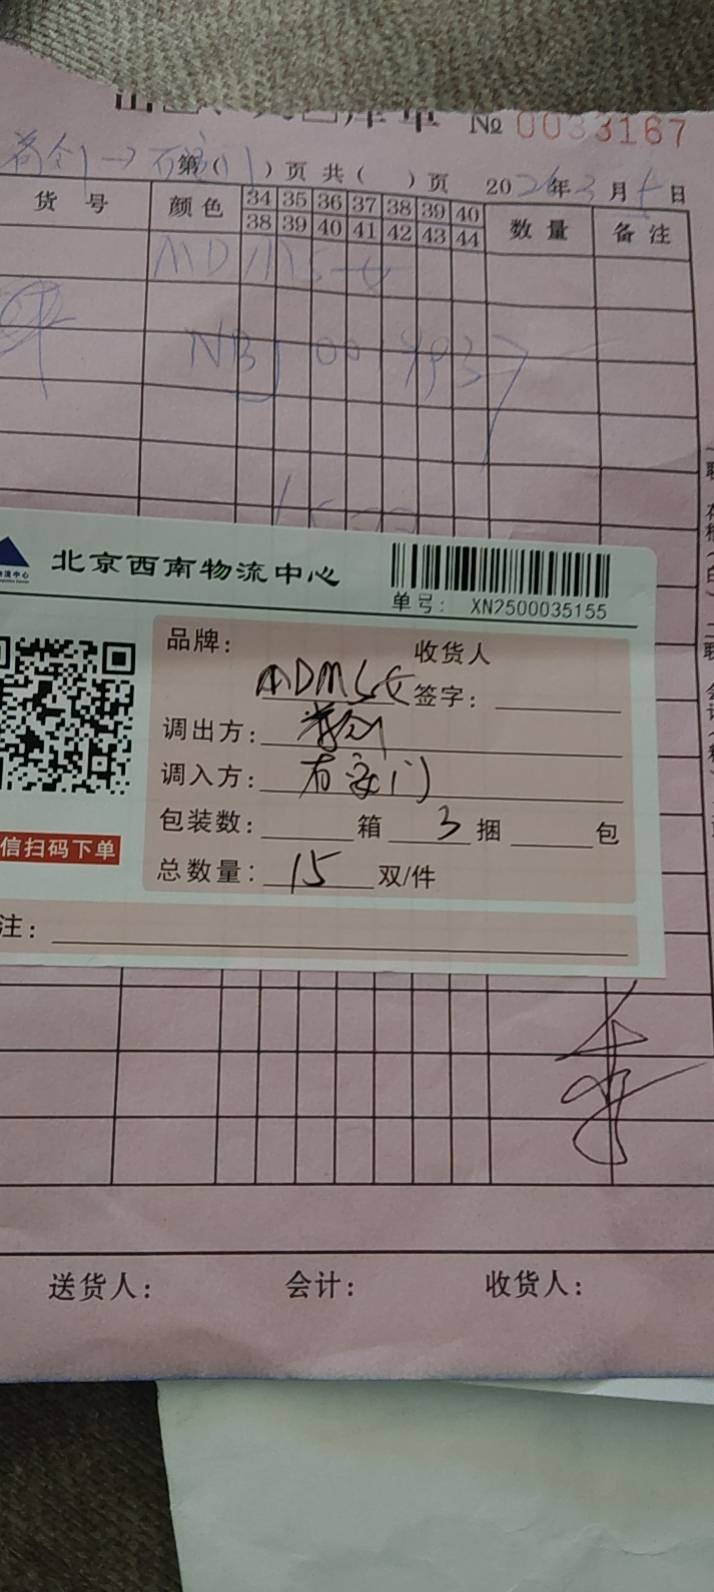 库单 № 0033167
第( )页 共( )页 20 年3月 日
货号 颜色 34 35 36 37 38 39 40 数量 备注
38 39 40 41 42 43 44
MDMS女
NBJ0019937
北京西南物流中心
单号: XN2500035155
品牌: MDMS女 收货人
签字:
调出方:
调入方:
包装数: 箱 3 捆 包
总数量: 15 双/件
信扫码下单
注:
送货人: 会计: 收货人: